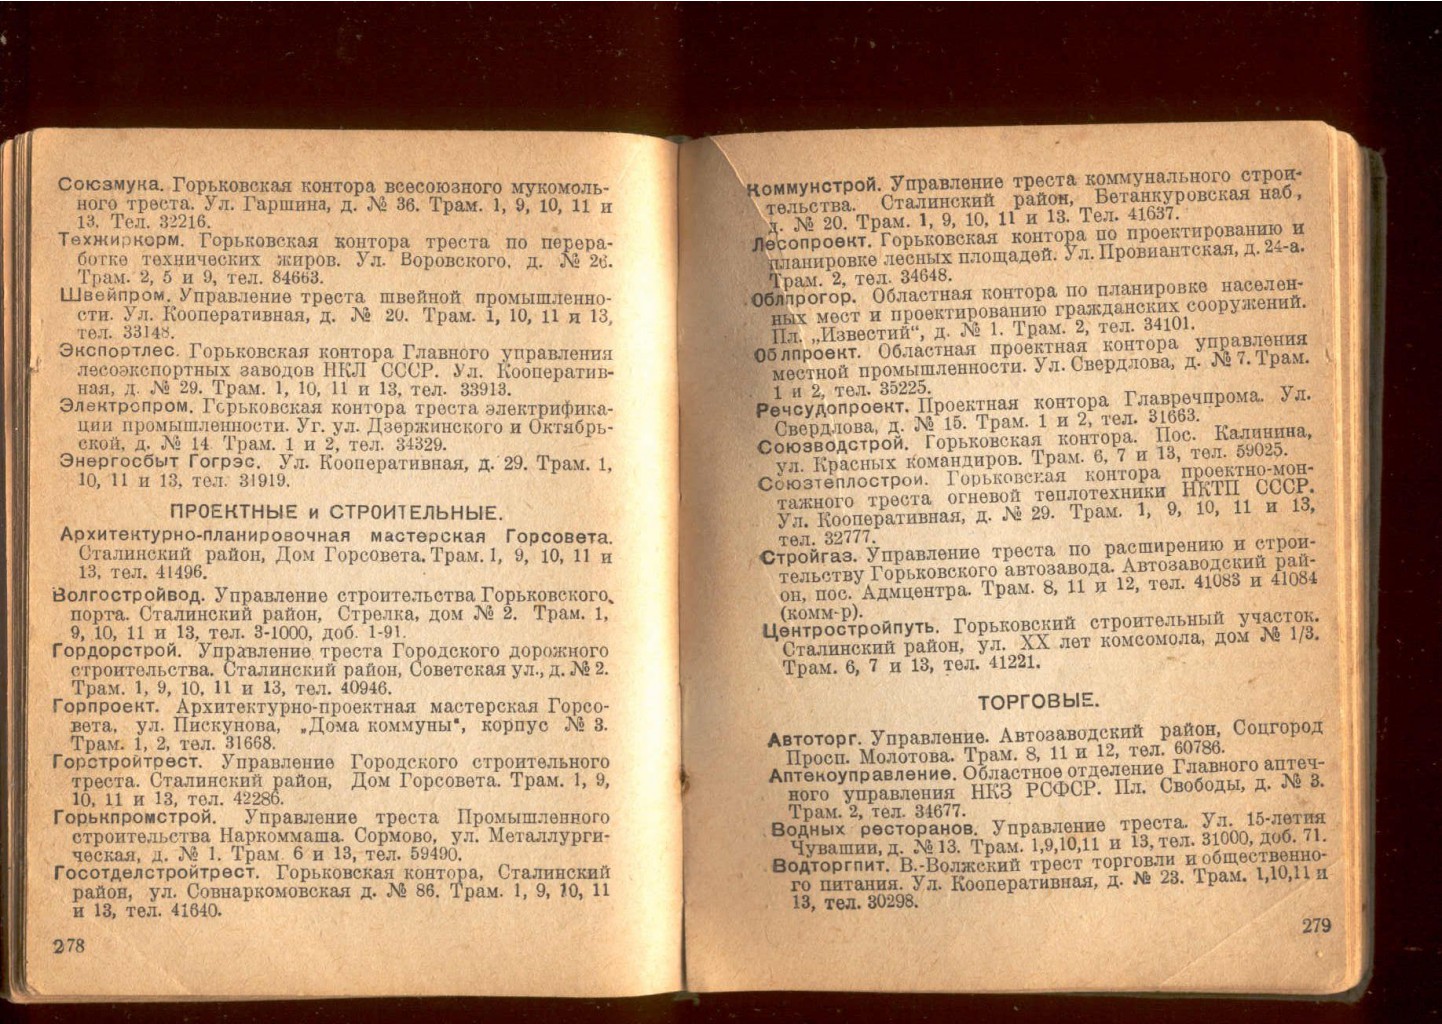 Союзмука. Горьковская контора всесоюзного мукомоль-
ного треста. Ул. Гаршина, д. № 36. Трам. 1, 9, 10, 11 и
13. Тел. 32216.
Техжиркорм. Горьковская контора треста по перера-
ботке технических жиров. Ул. Воровского, д. № 26.
Трам. 2, 5 и 9, тел. 84663.
Швейпром. Управление треста швейной промышленно-
сти. Ул. Кооперативная, д. № 20. Трам. 1, 10, 11 и 13,
тел. 33148.
Экспортлес. Горьковская контора Главного управления
лесоэкспортных заводов НКЛ СССР. Ул. Кооператив-
ная, д. № 29. Трам. 1, 10, 11 и 13, тел. 33913.
Электропром. Горьковская контора треста электрифика-
ции промышленности. Уг. ул. Дзержинского и Октябрь-
ской, д. № 14. Трам. 1 и 2, тел. 34329.
Энергосбыт Гогрэс. Ул. Кооперативная, д. 29. Трам. 1,
10, 11 и 13, тел. 31919.
ПРОЕКТНЫЕ и СТРОИТЕЛЬНЫЕ.
Архитектурно-планировочная мастерская Горсовета.
Сталинский район, Дом Горсовета. Трам. 1, 9, 10, 11 и
13, тел. 41496.
Волгостройвод. Управление строительства Горьковского
порта. Сталинский район, Стрелка, дом № 2. Трам. 1,
9, 10, 11 и 13, тел. 3-1000, доб. 1-91.
Гордорстрой. Управление треста Городского дорожного
строительства. Сталинский район, Советская ул., д. № 2.
Трам. 1, 9, 10, 11 и 13, тел. 40946.
Горпроект. Архитектурно-проектная мастерская Горсо-
вета, ул. Пискунова, „Дома коммуны“, корпус № 3.
Трам. 1, 2, тел. 31668.
Горстройтрест. Управление Городского строительного
треста. Сталинский район, Дом Горсовета. Трам. 1, 9,
10, 11 и 13, тел. 42286.
Горькпромстрой. Управление треста Промышленного
строительства Наркоммаша. Сормово, ул. Металлурги-
ческая, д. № 1. Трам. 6 и 13, тел. 59490.
Госотделстройтрест. Горьковская контора, Сталинский
район, ул. Совнаркомовская д. № 86. Трам. 1, 9, 10, 11
и 13, тел. 41640.
278
Коммунстрой. Управление треста коммунального строи-
тельства. Сталинский район, Бетанкуровская наб.,
д. № 20. Трам. 1, 9, 10, 11 и 13. Тел. 41637.
Лесопроект. Горьковская контора по проектированию и
планировке лесных площадей. Ул. Провиантская, д. 24-а.
Трам. 2, тел. 34648.
Облпрогор. Областная контора по планировке населен-
ных мест и проектированию гражданских сооружений.
Пл. „Известий“, д. № 1. Трам. 2, тел. 34101.
Облпроект. Областная проектная контора управления
местной промышленности. Ул. Свердлова, д. № 7. Трам.
1 и 2, тел. 35225.
Речсудопроект. Проектная контора Главречпрома. Ул.
Свердлова, д. № 15. Трам. 1 и 2, тел. 31663.
Союзводстрой. Горьковская контора. Пос. Калинина,
ул. Красных командиров. Трам. 6, 7 и 13, тел. 59025.
Союзтеплострой. Горьковская контора проектно-мон-
тажного треста огневой теплотехники НКТП СССР.
Ул. Кооперативная, д. № 29. Трам. 1, 9, 10, 11 и 13,
тел. 32777.
Стройгаз. Управление треста по расширению и строи-
тельству Горьковского автозавода. Автозаводский рай-
он, пос. Адмцентра. Трам. 8, 11 и 12, тел. 41083 и 41084
(комм-р).
Центростройпуть. Горьковский строительный участок.
Сталинский район, ул. XX лет комсомола, дом № 1/3.
Трам. 6, 7 и 13, тел. 41221.
ТОРГОВЫЕ.
Автоторг. Управление. Автозаводский район, Соцгород
Просп. Молотова. Трам. 8, 11 и 12, тел. 60786.
Аптекоуправление. Областное отделение Главного аптеч-
ного управления НКЗ РСФСР. Пл. Свободы, д. № 3.
Трам. 2, тел. 34677.
Водных ресторанов. Управление треста. Ул. 15-летия
Чувашии, д. № 13. Трам. 1,9,10,11 и 13, тел. 31000, доб. 71.
Водторгпит. В.-Волжский трест торговли и общественно-
го питания. Ул. Кооперативная, д. № 23. Трам. 1,10,11 и
13, тел. 30298.
279